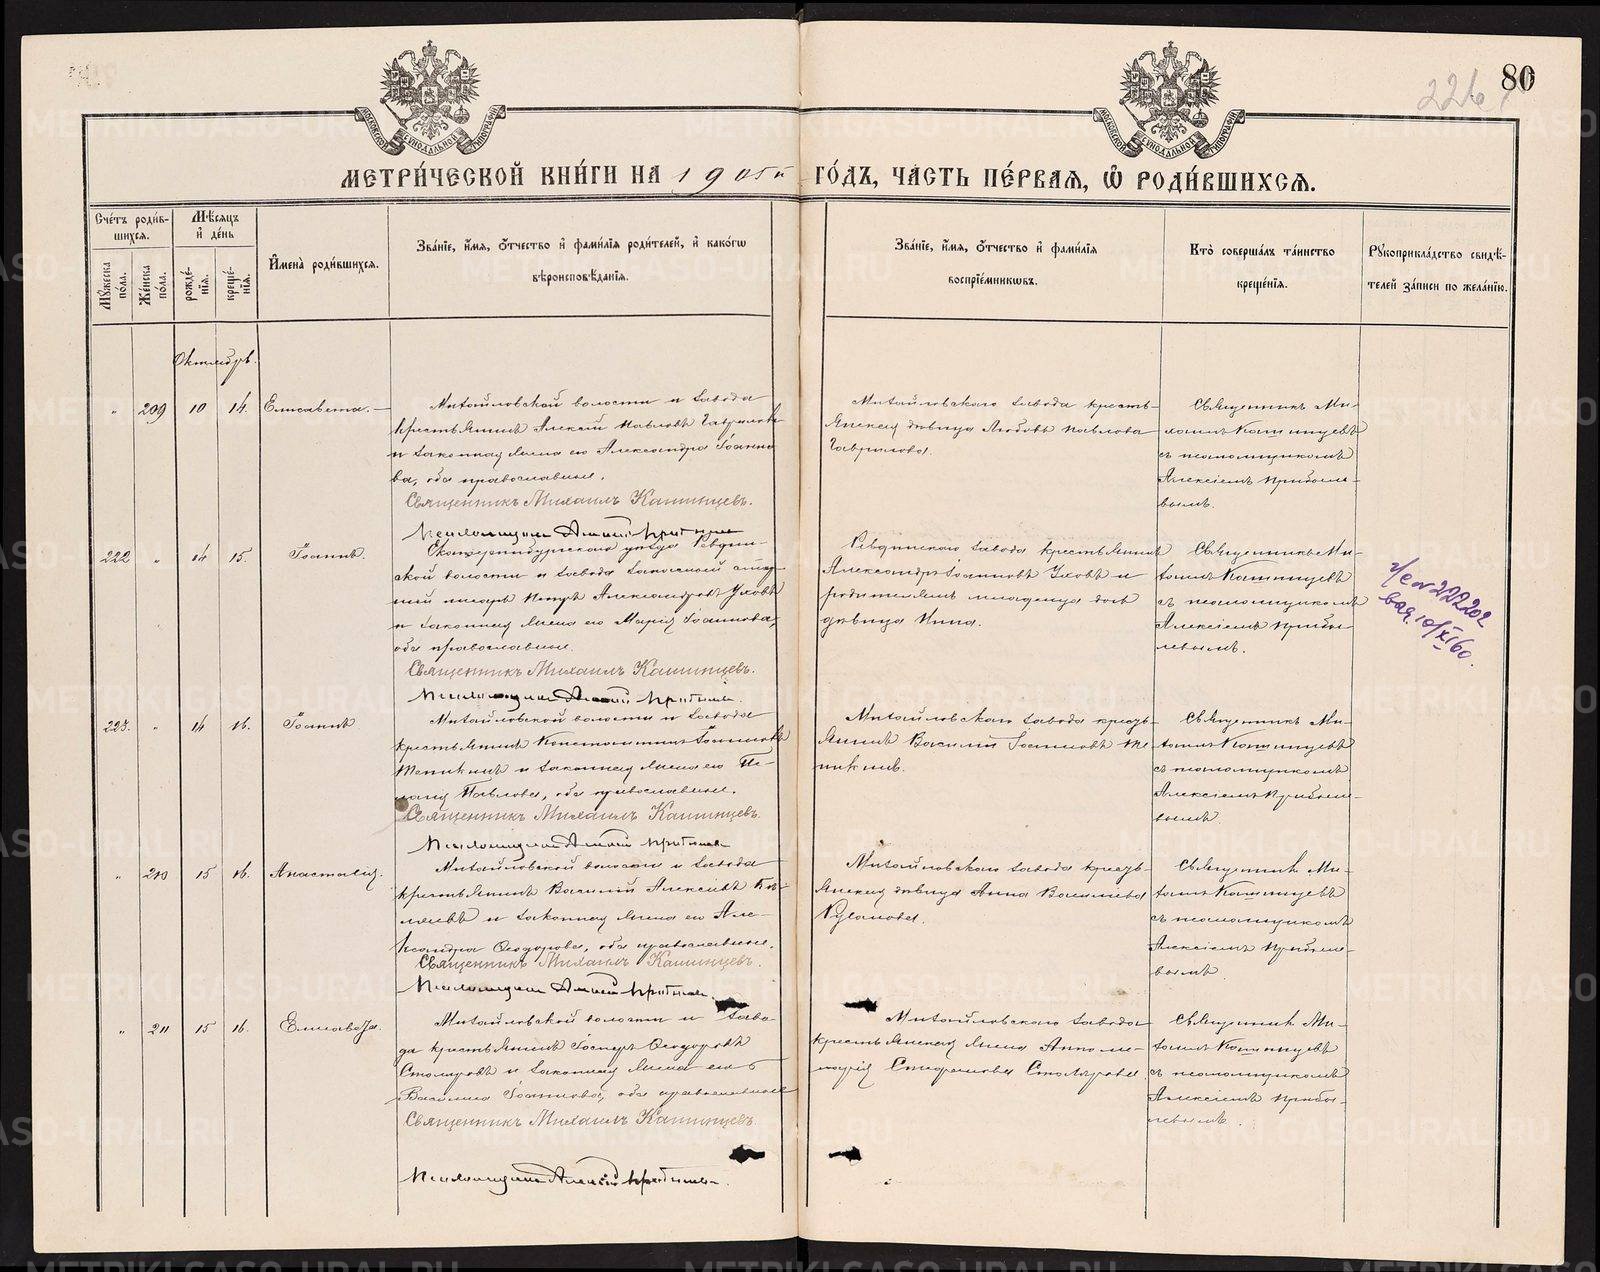 80
МЕТРИ́ЧЕСКОЙ КНИ́ГИ НА 1905й ГО́ДЪ, ЧА́СТЬ ПЕ́РВАЯ, Ѡ҆ РОДИ́ВШИХСЯ.
Сче́тъ роди́в-
шихся.
Мѣ́сяцъ
и҆ де́нь
Мꙋ́жеска по́ла.
Же́нска по́ла.
рожде́-
нїя.
креще́-
нїя.
И҆мена̀ роди́вшихся.
Зва́нїе, и҆́мя, ѻ҆́тчество и҆ фами́лїя роди́телей, и҆ како́гѡ
вѣроисповѣ́данїя.
Зва́нїе, и҆́мя, ѻ҆́тчество и҆ фами́лїя
воспрїе́мникѡвъ.
Кто̀ соверша́лъ та́инство
креще́нїя.
Рꙋкоприкла́дство свидѣ́-
телей за́писи по жела́нїю.
Октябрь.
" 209 10 14. Елисавета.
Михайловской волости и завода
крестьянинъ Алексѣй Павловъ Гавриловъ
и законная жена его Александра Іоанно
ва, оба православные.
Священникъ Михаилъ Кашинцевъ.
Псаломщикъ Алексѣй Прибылевъ
Михайловскаго завода кресть-
янская дѣвица Любовь Павлова
Гаврилова.
Священникъ Ми-
хаилъ Кашинцевъ
съ псаломщикомъ
Алексіемъ Прибыле-
вымъ.
222 " 14 15. Іоаннъ.
Екатеринбургскаго уѣзда Ревдин-
ской волости и завода запасный стар-
шій писарь Петръ Александровъ Уховъ
и законная жена его Марія Іоаннова,
оба православные.
Священникъ Михаилъ Кашинцевъ.
Псаломщикъ Алексѣй Прибылевъ.
Ревдинскаго завода крестьянинъ
Александръ Іоанновъ Уховъ и
родителямъ младенца дочь
дѣвица Нина.
Священникъ Ми-
хаилъ Кашинцевъ
съ псаломщикомъ
Алексіемъ Прибы-
левымъ.
223. " 14 16. Іоаннъ
Михайловской волости и завода
крестьянинъ Константинъ Іоанновъ
и законная жена его
Павлова, оба православные.
Священникъ Михаилъ Кашинцевъ.
Псаломщикъ Алексѣй Прибылевъ
Михайловскаго завода кресть-
янинъ Василій Іоанновъ
Священникъ Ми-
хаилъ Кашинцевъ
съ псаломщикомъ
Алексіемъ Прибыле-
вымъ.
" 210 15 16. Анастасія.
Михайловской волости и завода
крестьянинъ Василій Алексіевъ
и законная жена его Але-
ксандра Ѳеодорова, оба православные.
Священникъ Михаилъ Кашинцевъ.
Псаломщикъ Алексѣй Прибылевъ.
Михайловскаго завода кресть-
янская дѣвица Анна Васильева
Русанова.
Священникъ Ми-
хаилъ Кашинцевъ
съ псаломщикомъ
Алексіемъ Прибыле-
вымъ.
" 211 15 16. Елисавета.
Михайловской волости и заво-
да крестьянинъ Ѳеодоровъ
Столяровъ и законная жена его
Василиса Іоаннова, оба православные
Священникъ Михаилъ Кашинцевъ.
Псаломщикъ Алексѣй Прибылевъ.
Михайловскаго завода
крестьянская жена
Стефанова Столярова.
Священникъ Ми-
хаилъ Кашинцевъ
съ псаломщикомъ
Алексіемъ Прибы-
левымъ.